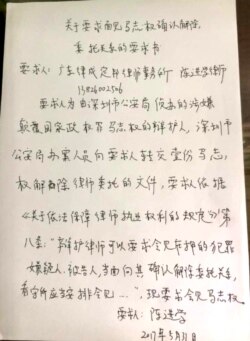 关于要求面见马志权确认解除
委托关系的要求书
要求人:广东律成定邦律师事务所 陈进学律师
要求人为由深圳市公安局侦办的涉嫌
颠覆国家政权罪马志权的辩护人,深圳市
公安局办案人员向要求人转交壹份马志
权解除律师委托的文件,要求依据
《关于依法保障律师执业权利的规定》第
八条:"辩护律师可以要求会见在押的犯罪
嫌疑人、被告人当面向其确认解除委托关系,
看守所应当安排会见…",现要求会见马志权
要求人:陈进学
2017年5月31日